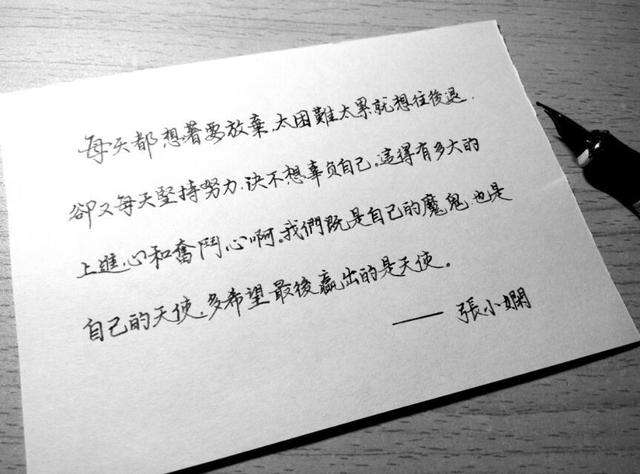 每天都想著要放棄，太困難太累就想往後退，
卻又每天堅持努力，決不想辜负自己，這得有多大的
上進心和奮鬥心啊。我們既是自己的魔鬼，也是
自己的天使，多希望最後贏出的是天使。
—— 張小嫻